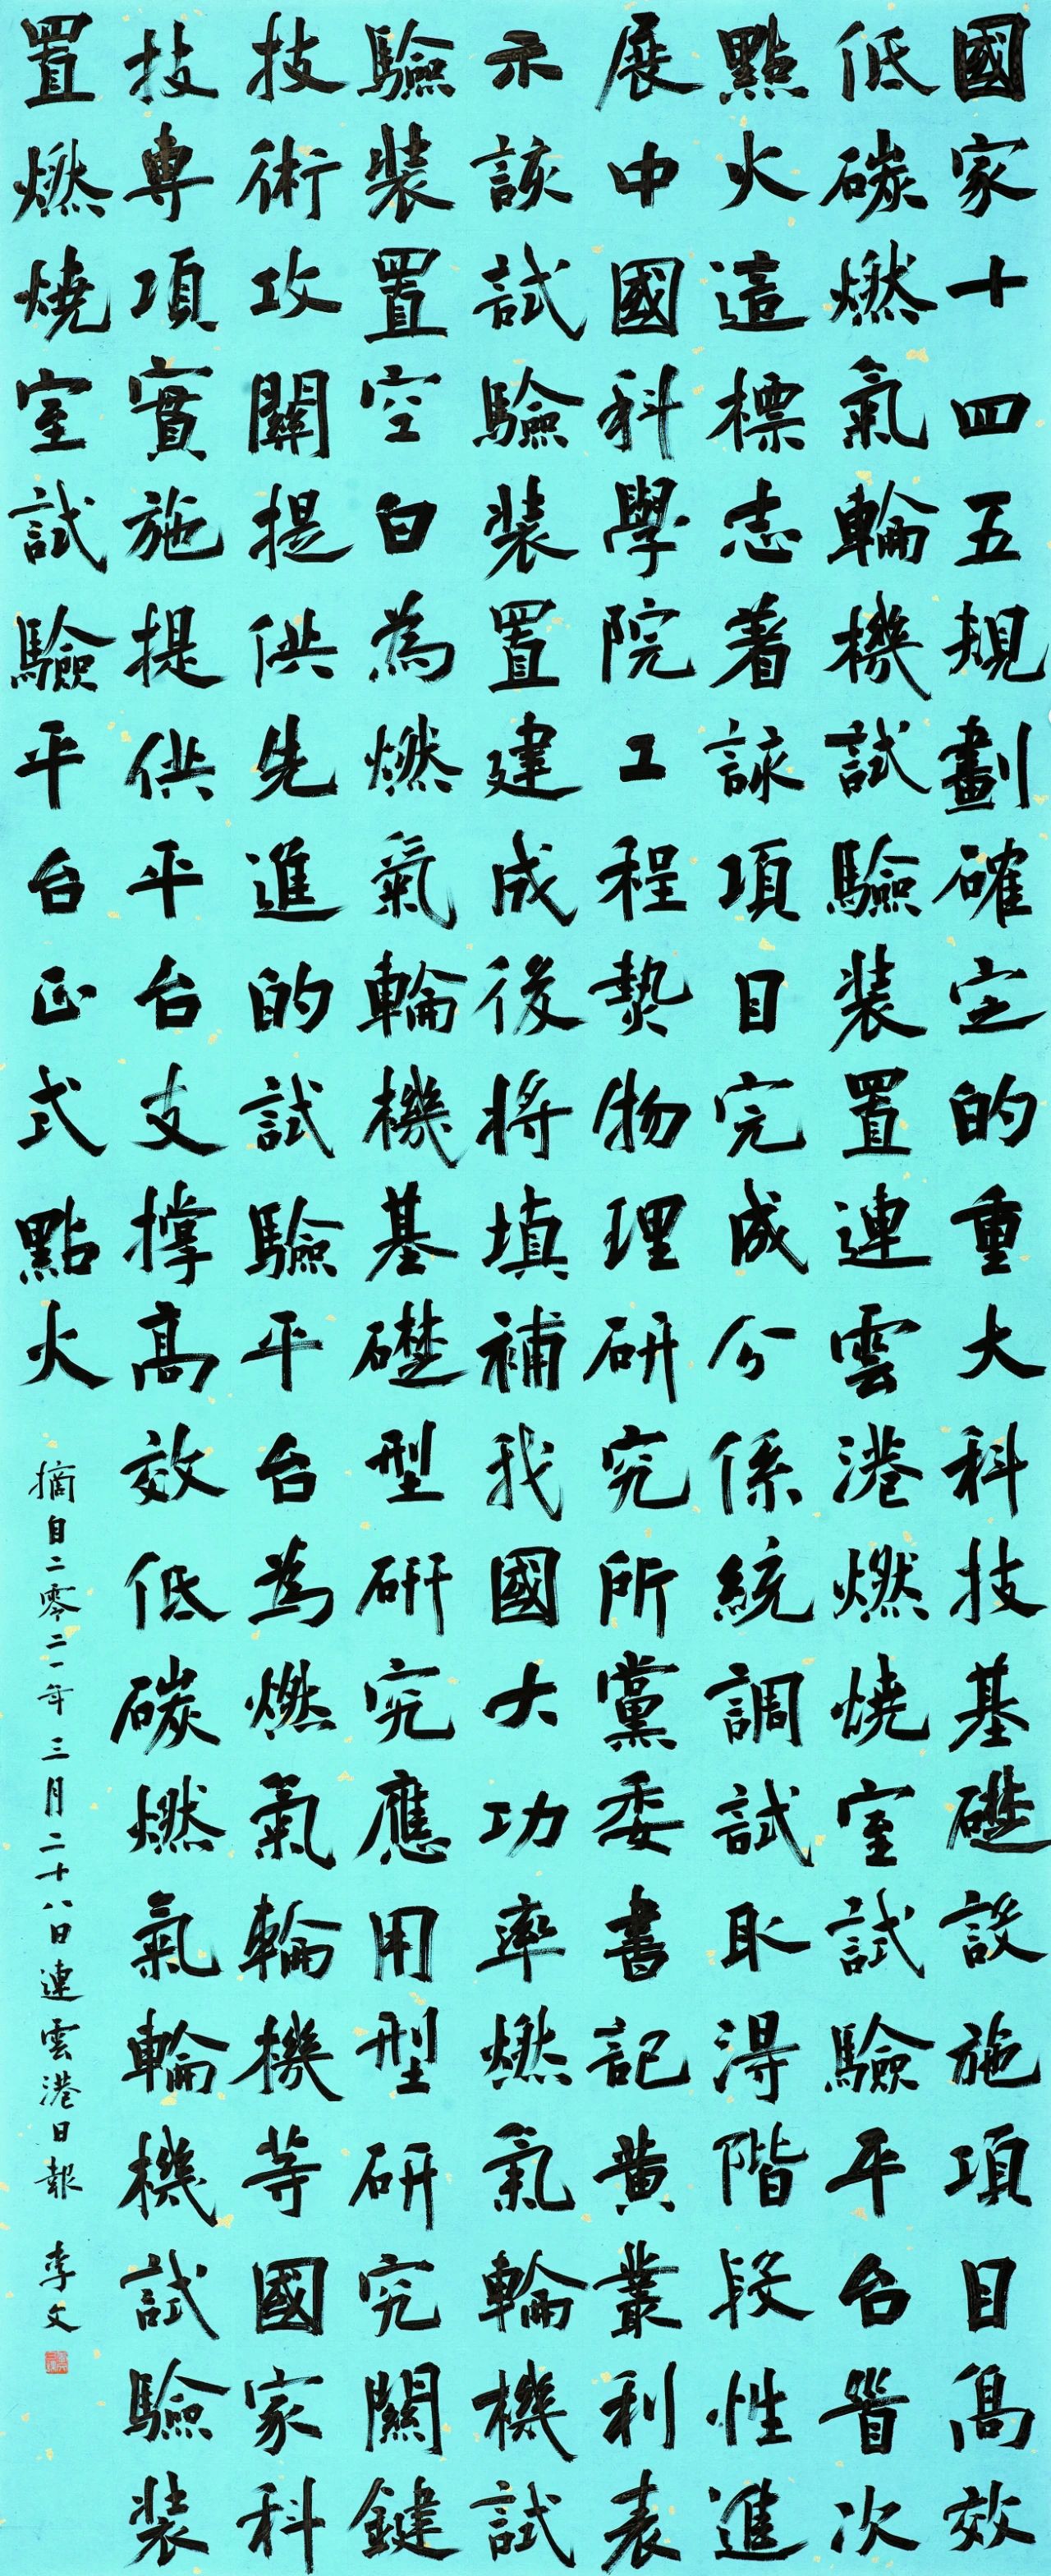 國家十四五規劃確定的重大科技基礎設施項目高效
低碳燃氣輪機試驗裝置連雲港燃燒室試驗平台首次
點火這標志着該項目完成分係統調試取得階段性進
展中國科學院工程熱物理研究所黨委書記黃叢利表
示該試驗裝置建成後將填補我國大功率燃氣輪機試
驗裝置空白為燃氣輪機基礎型研究應用型研究關鍵
技術攻關提供先進的試驗平台為燃氣輪機等國家科
技專項實施提供平台支撐高效低碳燃氣輪機試驗裝
置燃燒室試驗平台正式點火
摘自二零二一年三月二十八日連雲港日報 李文